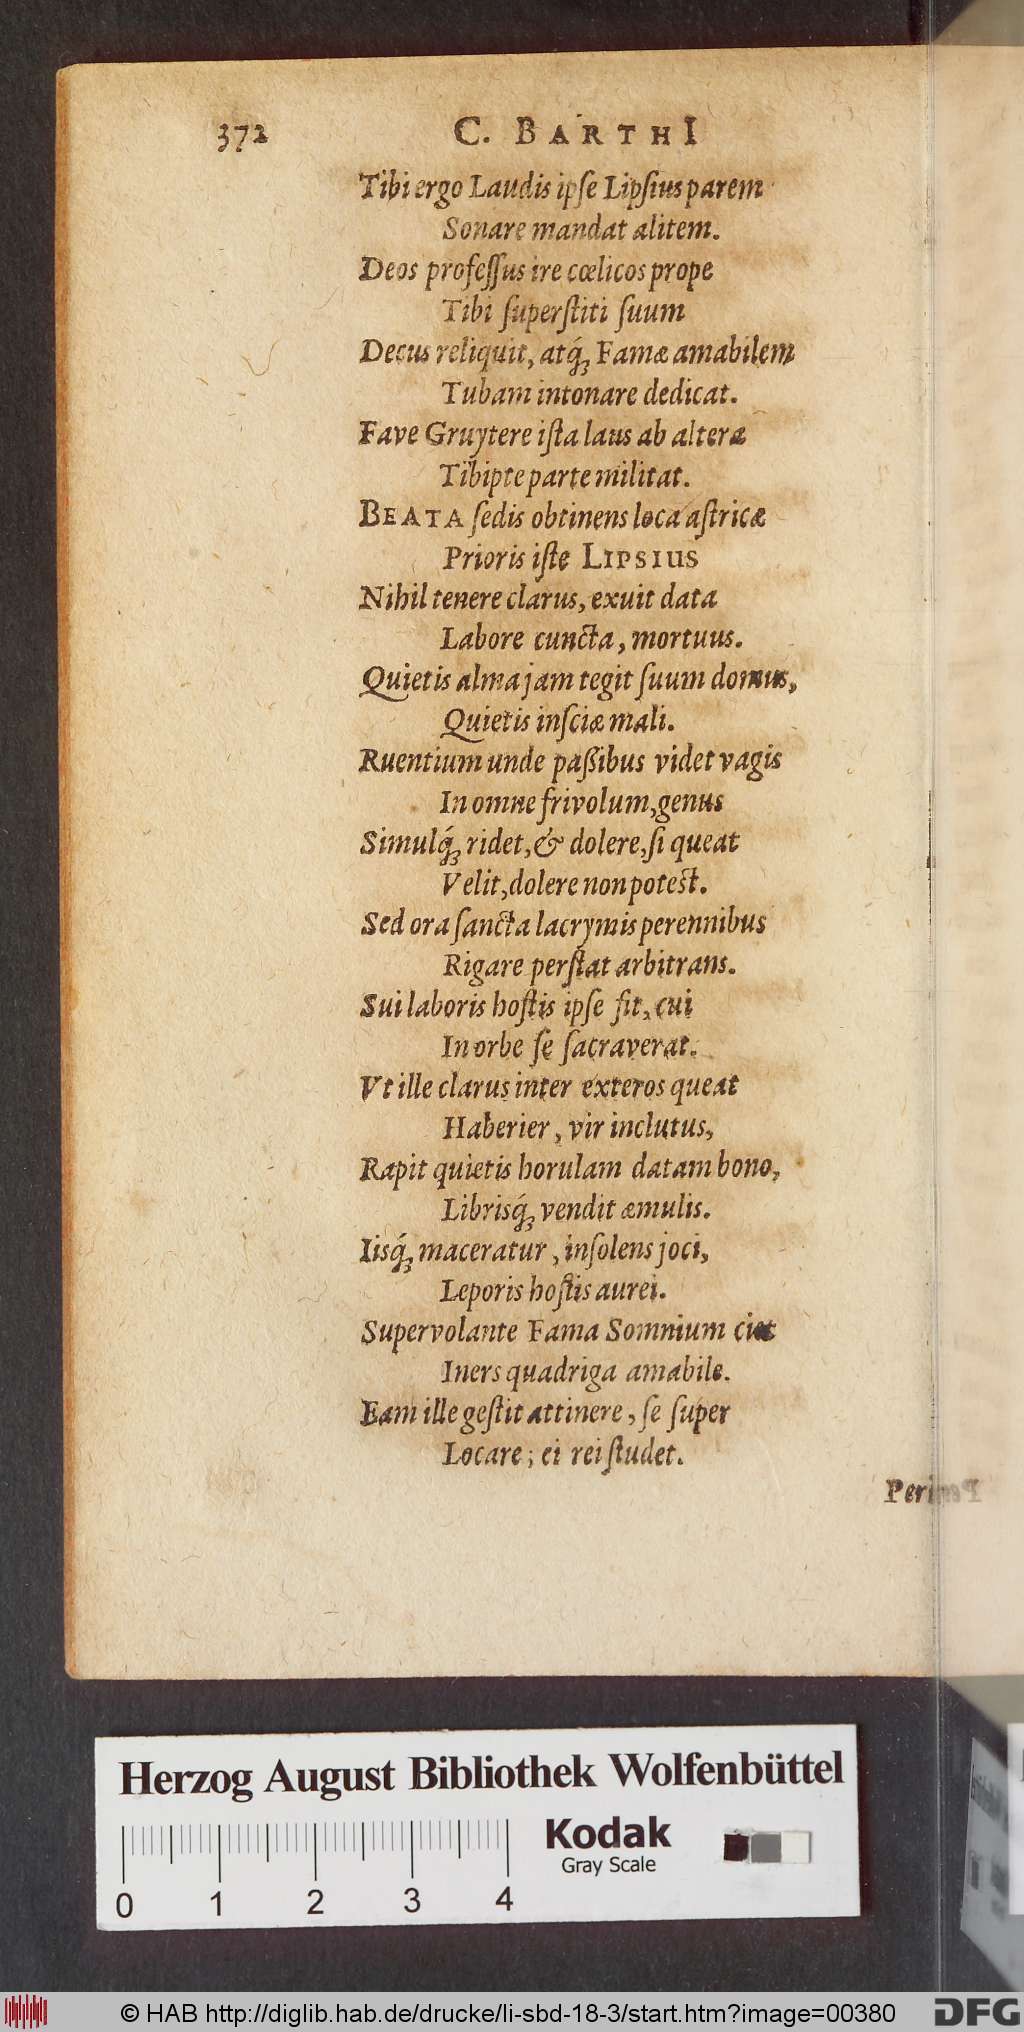 372 C. BARTHI
Tibi ergo Laudis ipſe Lipſius parem
Sonare mandat alitem.
Deos profeſſus ire cœlicos prope
Tibi ſuperſtiti ſuum
Decus reliquit, atq́ꝫ Famæ amabilem
Tubam intonare dedicat.
Fave Gruytere iſta laus ab alteræ
Tibipte parte militat.
BEATA ſedis obtinens loca aſtricæ
Prioris iſte LIPSIUS
Nihil tenere clarus, exuit data
Labore cuncta, mortuus.
Quietis alma jam tegit ſuum domus,
Quietis inſciæ mali.
Ruentium unde paßibus videt vagis
In omne frivolum, genus
Simulq́ꝫ ridet, & dolere, ſi queat
Velit, dolere non poteſt.
Sed ora ſancta lacrymis perennibus
Rigare perſtat arbitrans.
Sui laboris hoſtis ipſe fit, cui
In orbe ſe ſacraverat.
Vt ille clarus inter exteros queat
Haberier, vir inclutus,
Rapit quietis horulam datam bono,
Librisq́ꝫ vendit æmulis.
Iisq́ꝫ maceratur, inſolens joci,
Leporis hoſtis aurei.
Supervolante Fama Somnium ciet
Iners quadriga amabile.
Eam ille geſtit attinere, ſe ſuper
Locare; ei rei ſtudet.
Herzog August Bibliothek Wolfenbüttel
Kodak
Gray Scale
0 1 2 3 4
© HAB http://diglib.hab.de/drucke/li-sbd-18-3/start.htm?image=00380
DFG